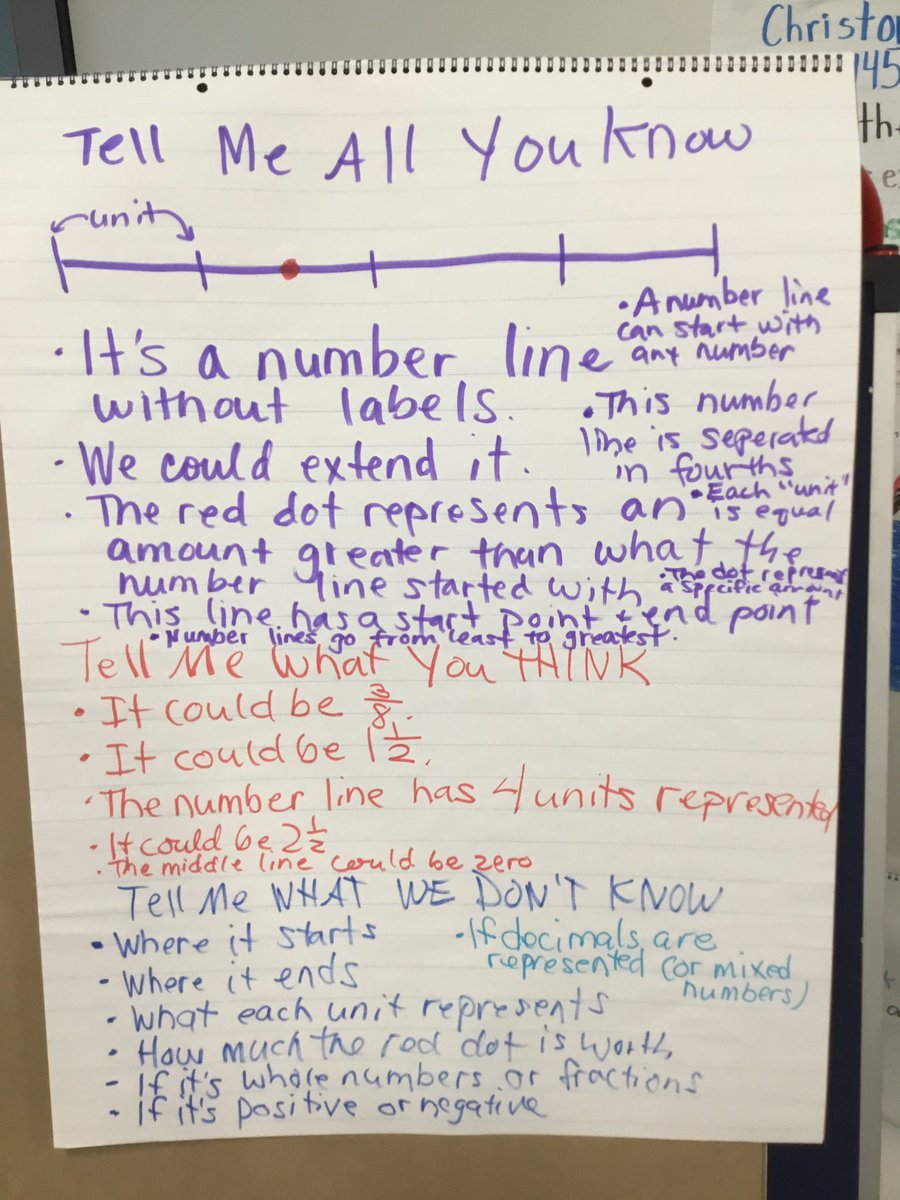 Christo
145
th
e
Tell Me All You Know
unit
• It's a number line
without labels.
• A number line
can start with
any number
• We could extend it.
• This number
line is seperated
in fourths
• Each "unit"
is equal
• The red dot represents an
amount greater than what the
number line started with
• The dot represe
a specific amount
• This line has a start point + end point
• Number lines go from least to greatest.
Tell Me What You THINK
• It could be 3/8.
• It could be 1 1/2.
• The number line has 4 units represented
• It could be 2 1/2
• The middle line could be zero
Tell Me WHAT WE DON'T KNOW
• Where it starts
• Where it ends
• If decimals are
represented (or mixed
numbers)
• What each unit represents
• How much the red dot is worth
- If it's whole numbers or fractions
• If it's positive or negative